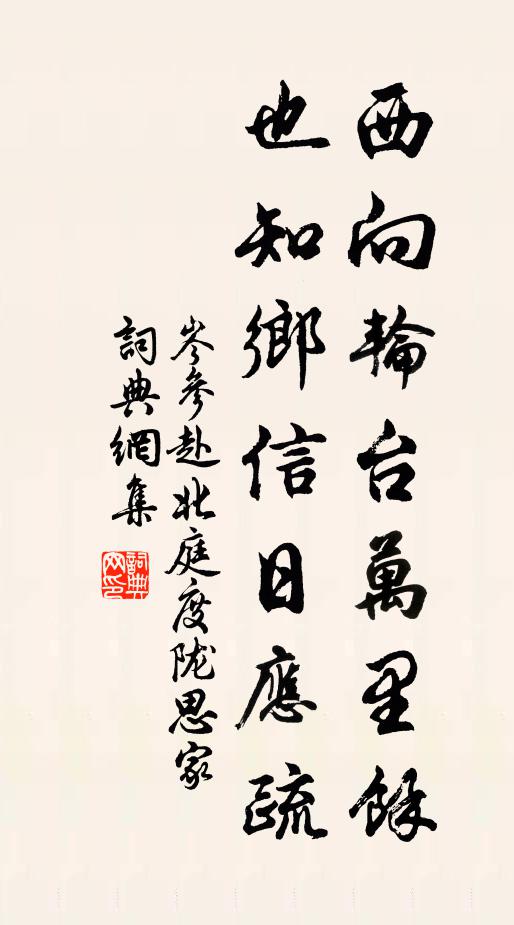 西向輪台萬里餘
也知鄉信日應疏
岑參赴北庭度陇思家
詞典網集
詞典网印